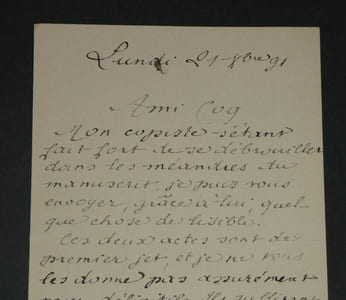 Lundi 21 Xbre 91
Ami Coq
Mon copiste s'étant
fait fort de se débrouiller
dans les méandres du
manuscrit, je puis vous
envoyer, grâce à lui, quel-
que chose de lisible.
Ces deux actes sont de
premier jet, et je ne vous
les donne pas assurément
pour définitifs. Ils